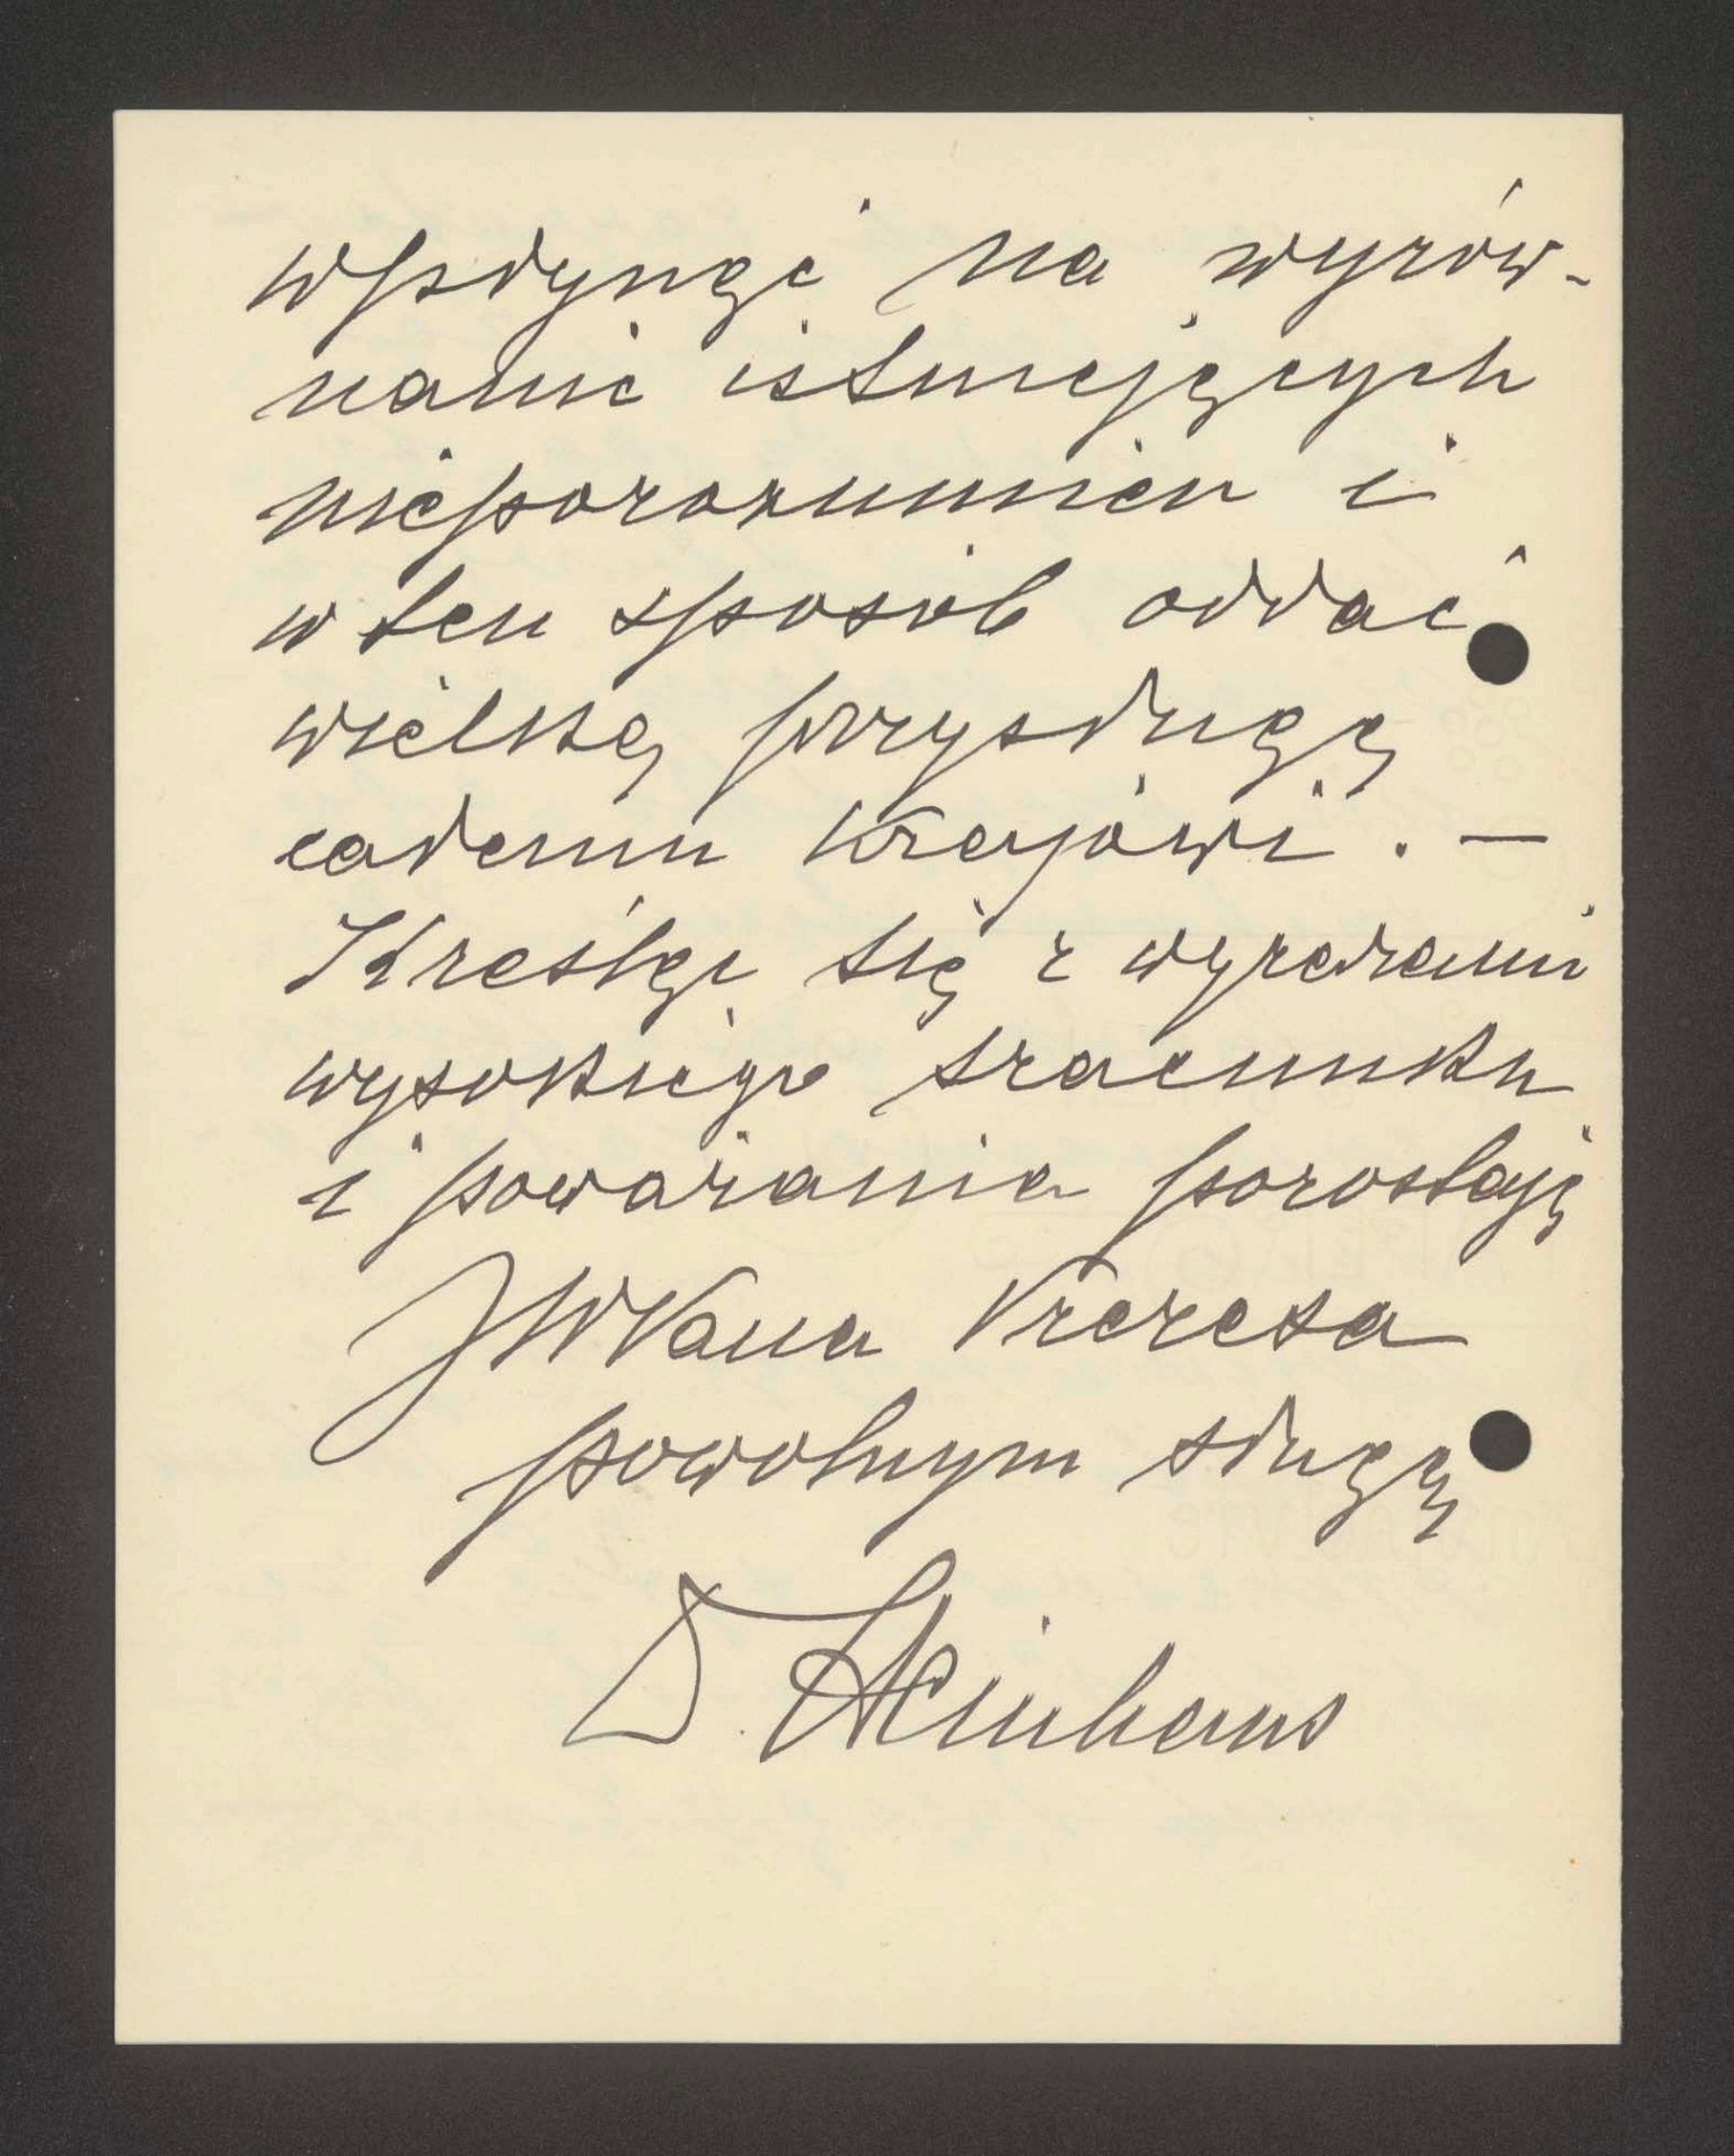 wpłynąć na wyrów-
nanie istniejących
nieporozumien i
w ten sposób oddać
wielką przysługę
całemu Krajowi . —
Kreśląc się z wyrazami
wysokiego szacunku
i poważania pozostaję
JWPana Prezesa
powolnym sługą
D. Steinhaus